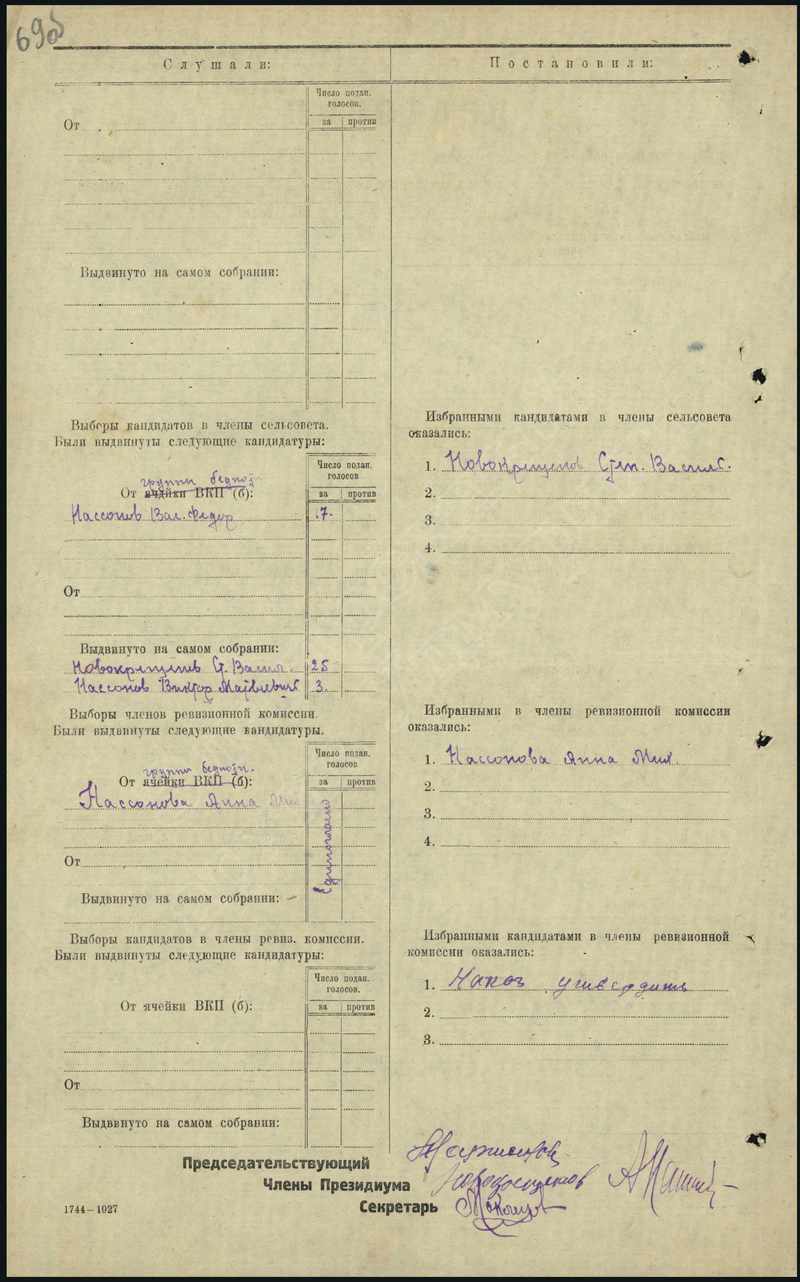 69об
Слушали:
Постановили:
Число подан. голосов.
за против
От
Выдвинуто на самом собрании:
Выборы кандидатов в члены сельсовета.
Были выдвинуты следующие кандидатуры:
Число подан. голосов
за против
группы бедноты
От ячейки ВКП (б):
Нассонов Вас. Федор 7.
От
Выдвинуто на самом собрании:
Новокрещенов Ст. Васил. 25
Нассонов Виктор Матвеевич 3.
Избранными кандидатами в члены сельсовета
оказались:
1. Новокрещенов Степ. Васил.
2.
3.
4.
Выборы членов ревизионной комиссии.
Были выдвинуты следующие кандидатуры.
Число подан. голосов
за против
группы бедноты.
От ячейки ВКП (б):
Нассонова Анна Мих
единогласно
От
Выдвинуто на самом собрании:
Избранными в члены ревизионной комиссии
оказались:
1. Нассонова Анна Мих.
2.
3.
4.
Выборы кандидатов в члены ревиз. комиссии.
Были выдвинуты следующие кандидатуры:
Число подан. голосов.
за против
От ячейки ВКП (б):
От
Выдвинуто на самом собрании:
Избранными кандидатами в члены ревизионной
комиссии оказались:
1. Наказ утвердить
2.
3.
Председательствующий
Члены Президиума
Секретарь
1744—1927